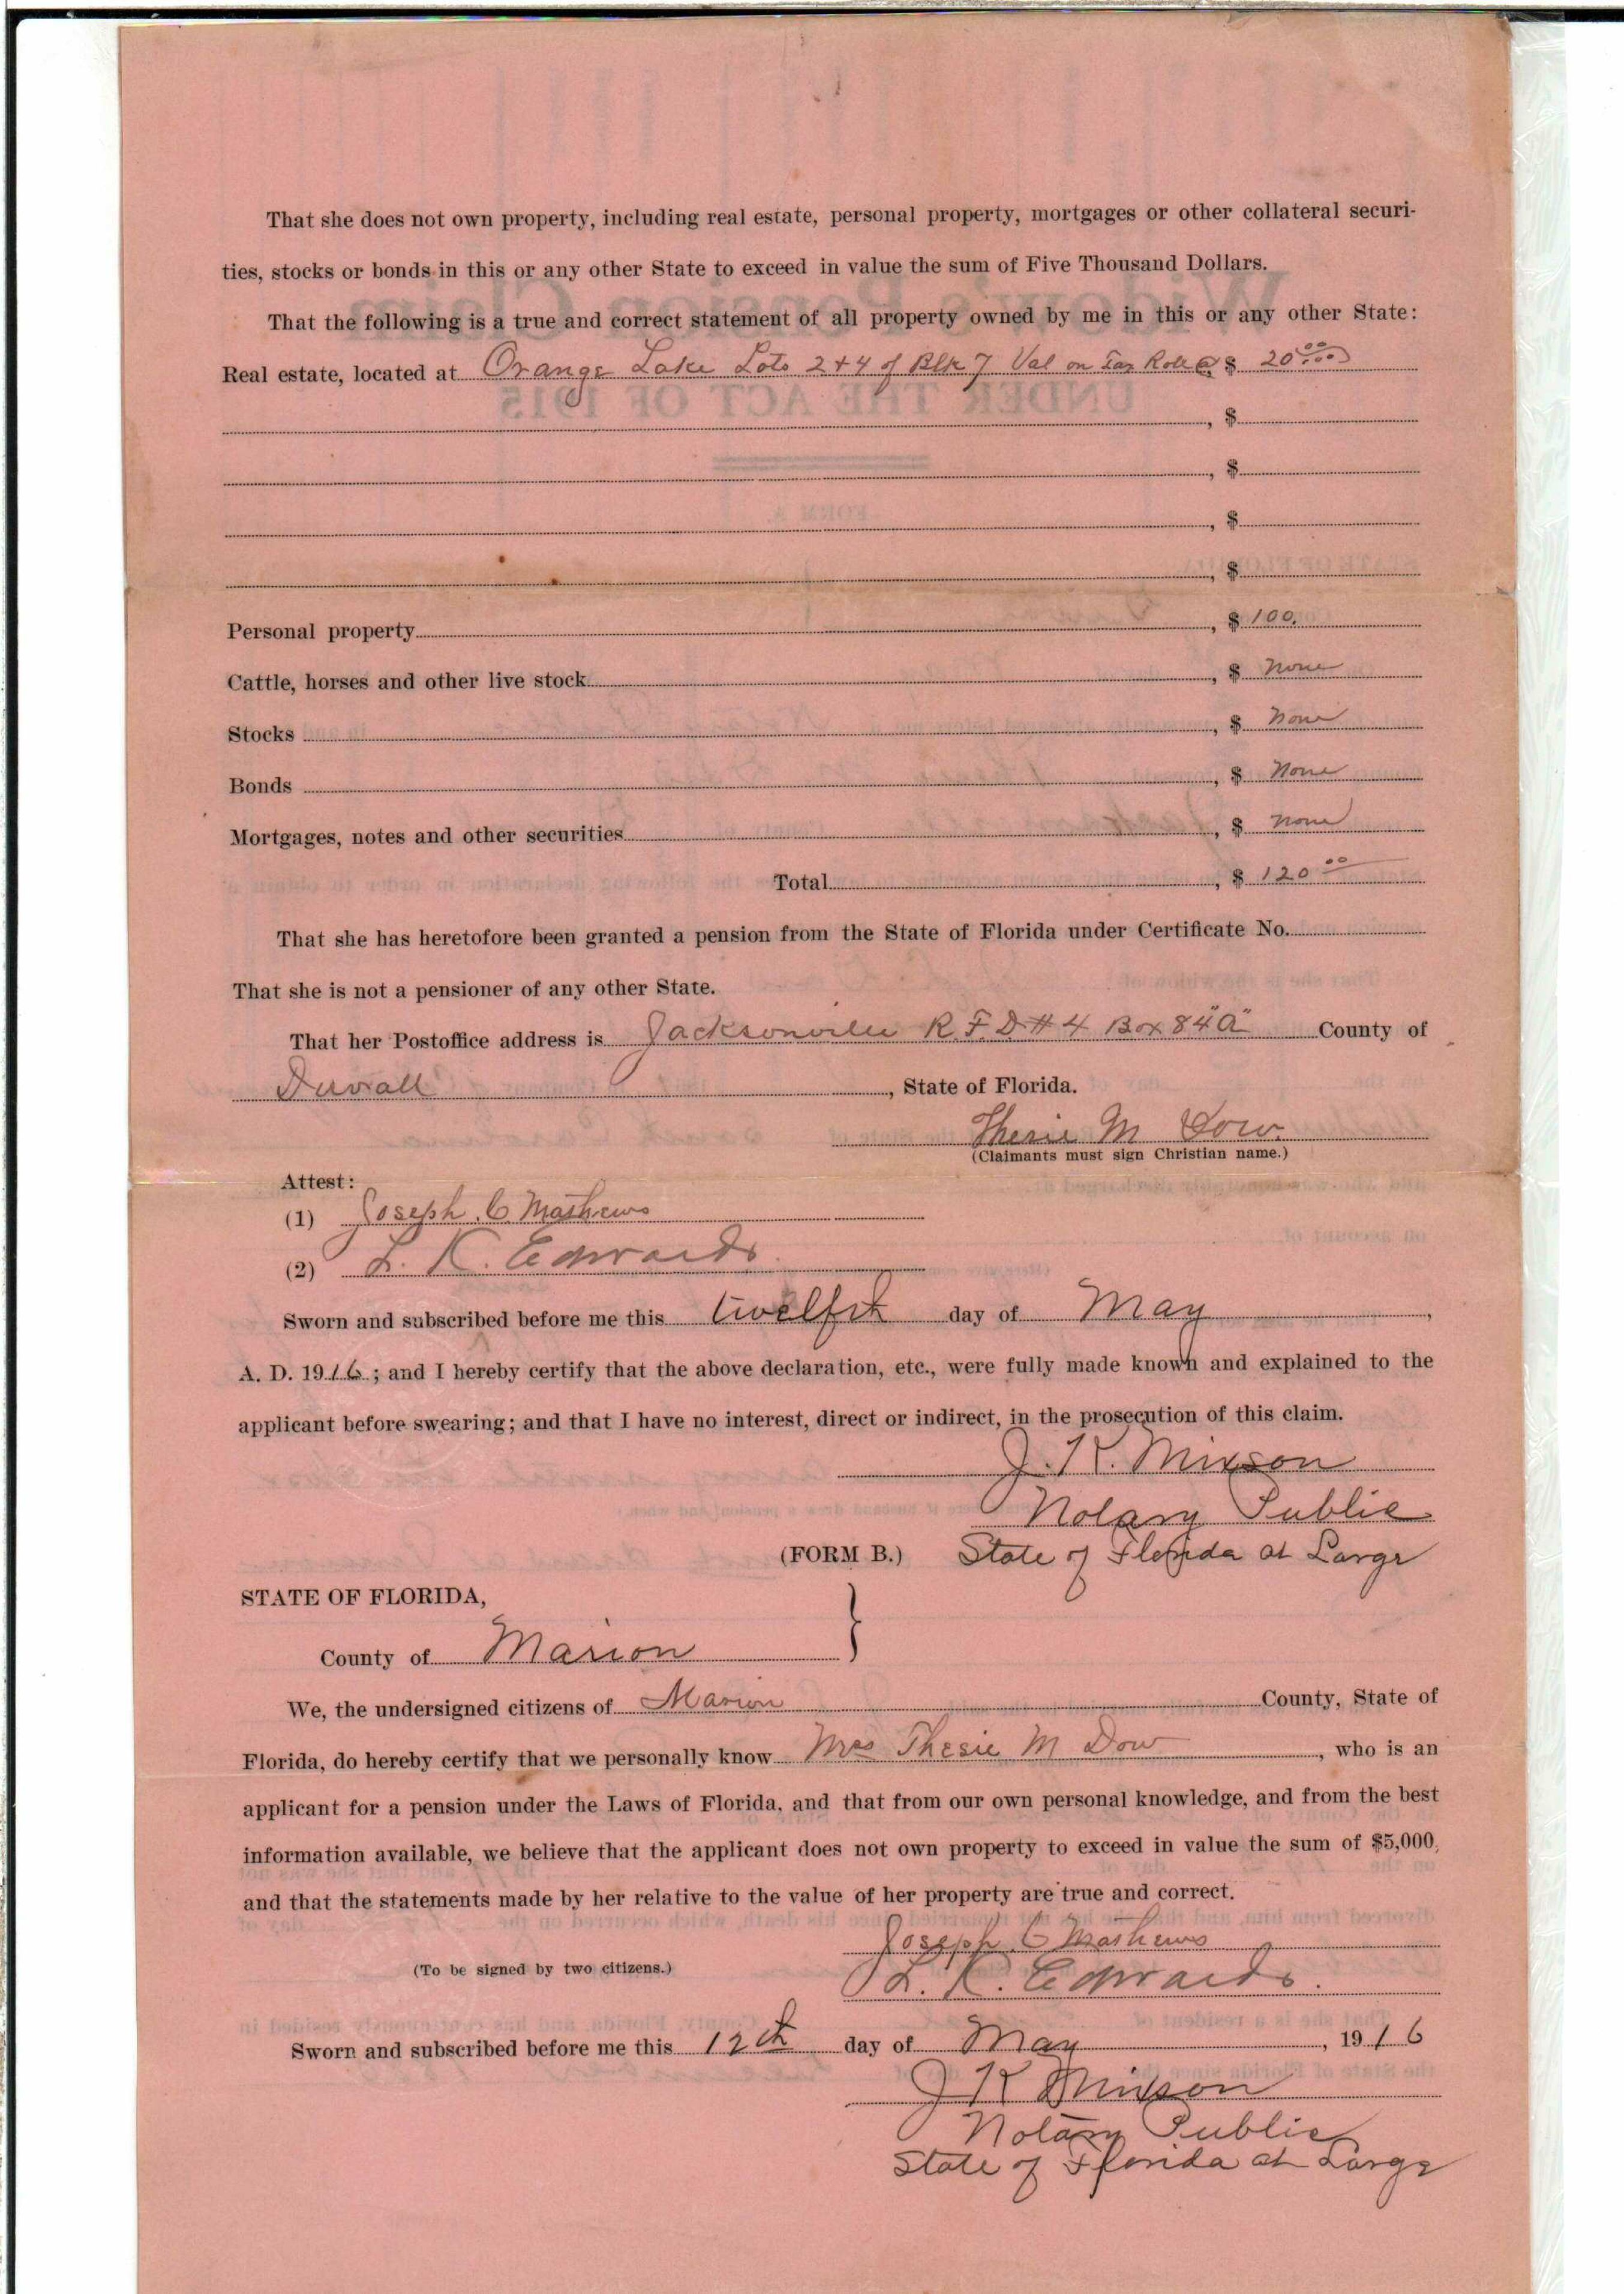 That she does not own property, including real estate, personal property, mortgages or other collateral securi-
ties, stocks or bonds in this or any other State to exceed in value the sum of Five Thousand Dollars.
That the following is a true and correct statement of all property owned by me in this or any other State:
Real estate, located at Orange Lake Lots 2 + 4 of Blk 7 Val on Tax Roll @ $ 20.00
, $
, $
, $
, $
Personal property, $ 100.
Cattle, horses and other live stock, $ None
Stocks, $ None
Bonds, $ None
Mortgages, notes and other securities, $ None
Total, $ 120 00
That she has heretofore been granted a pension from the State of Florida under Certificate No.
That she is not a pensioner of any other State.
That her Postoffice address is Jacksonville R.F.D # 4 Box 84 "A" County of
Duvall, State of Florida.
Thesie M Dow.
(Claimants must sign Christian name.)
Attest:
(1) Joseph. C. Mathews
(2) L. K. Edwards.
Sworn and subscribed before me this twelfth day of May,
A. D. 1916; and I hereby certify that the above declaration, etc., were fully made known and explained to the
applicant before swearing; and that I have no interest, direct or indirect, in the prosecution of this claim.
J. K. Mixson
Notary Public
(FORM B.) State of Florida at Large
STATE OF FLORIDA,
County of Marion
We, the undersigned citizens of Marion County, State of
Florida, do hereby certify that we personally know Mrs Thesie M Dow, who is an
applicant for a pension under the Laws of Florida, and that from our own personal knowledge, and from the best
information available, we believe that the applicant does not own property to exceed in value the sum of $5,000,
and that the statements made by her relative to the value of her property are true and correct.
Joseph. C Mathews
(To be signed by two citizens.) L. K. Edwards.
Sworn and subscribed before me this 12th day of May, 1916
J K Mixson
Notary Public
State of Florida at Large